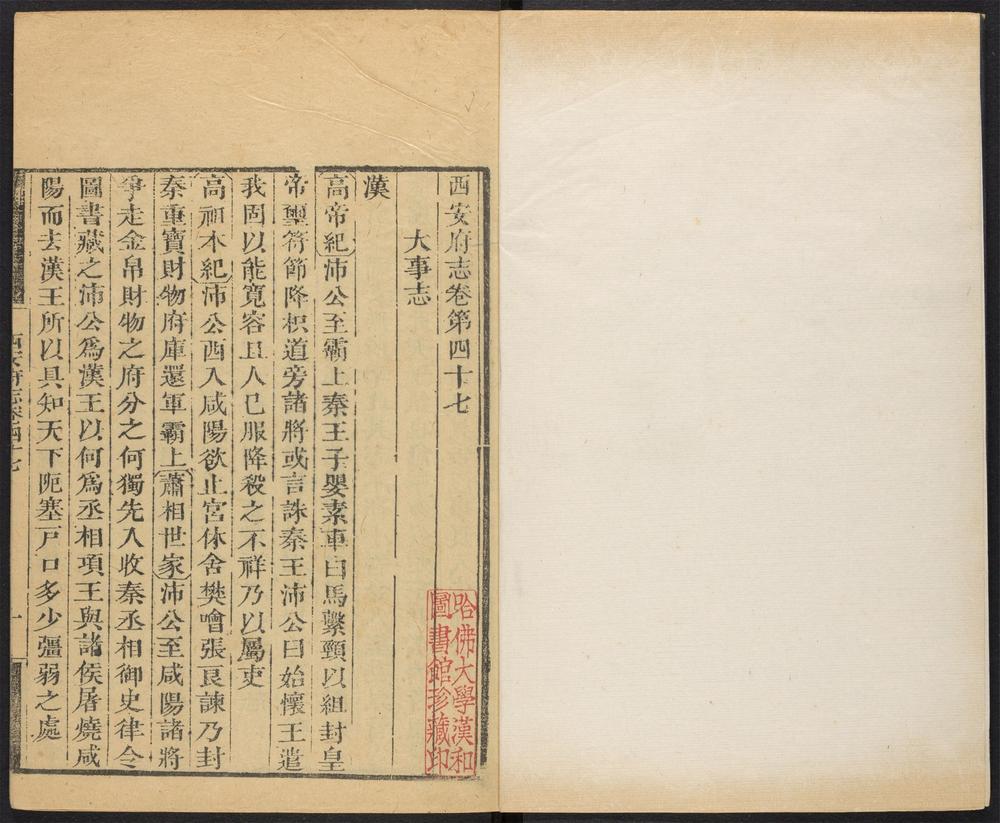 西安府志卷第四十七
大事志
漢
高帝紀沛公至霸上秦王子嬰素車白馬繫頸以組封皇
帝璽符節降枳道旁諸將或言誅秦王沛公曰始懷王遣
我固以能寬容且人已服降殺之不祥乃以屬吏
高祖本紀沛公西入咸陽欲止宮休舍樊噲張良諫乃封
秦重寶財物府庫還軍霸上蕭相世家沛公至咸陽諸將
爭走金帛財物之府分之何獨先入收秦丞相御史律令
圖書藏之沛公爲漢王以何爲丞相項王與諸侯屠燒咸
陽而去漢王所以具知天下阨塞戸口多少彊弱之處
西安府志卷四十七
一
哈佛大學漢和
圖書館珍藏印